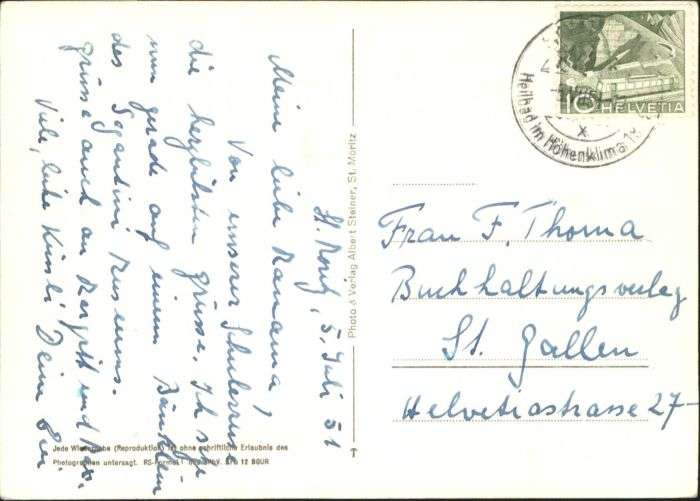 St. Moritz, 5. Juli 51
Meine liebe Mamama,
Von unserer Schulreise
die herzlichsten Grüsse. Ich sitze
nun gerade auf einem Bänklein
des Segantini Museums.
Grüsse auch an Margrit und
Viele, liebe Küssli Deine
Frau F. Thoma
Buchhaltungsverlag
St. Gallen
Helvetiastrasse 27-
Photo & Verlag Albert Steiner, St. Moritz
Jede Wiedergabe (Reproduktion) ist ohne schriftliche Erlaubnis des
Photographen untersagt. 12 BGUR
10 HELVETIA
Heilbad im Höhenklima 18